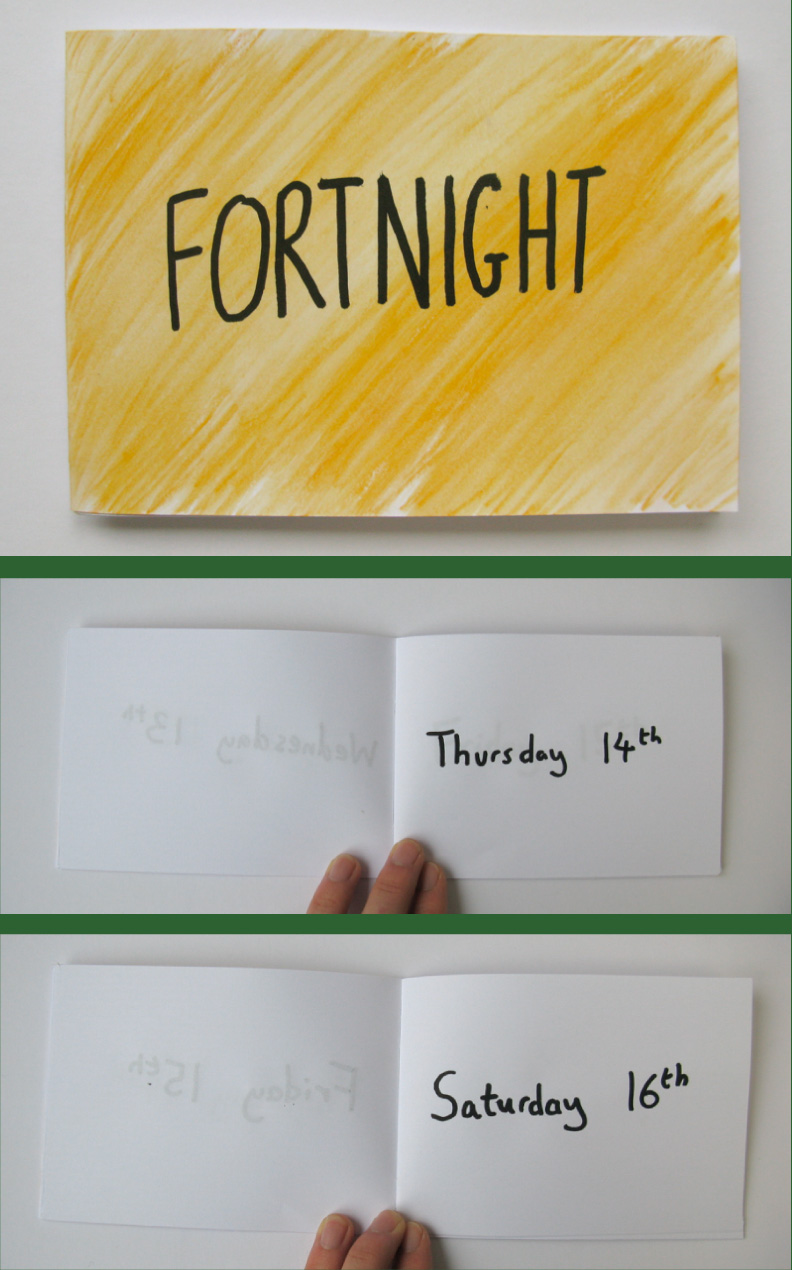 FORTNIGHT
Wednesday 13th
Thursday 14th
Friday 15th
Saturday 16th